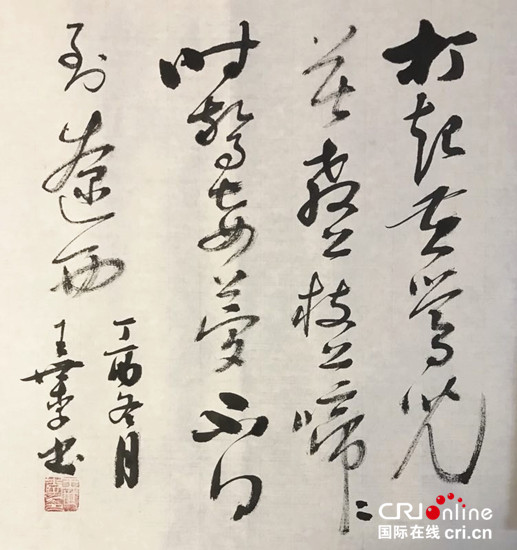 打起黄莺儿
莫教枝上啼〻
时惊妾梦不得
到遼西
丁酉冬月
王業书
CRI online
国际在线 cri.cn